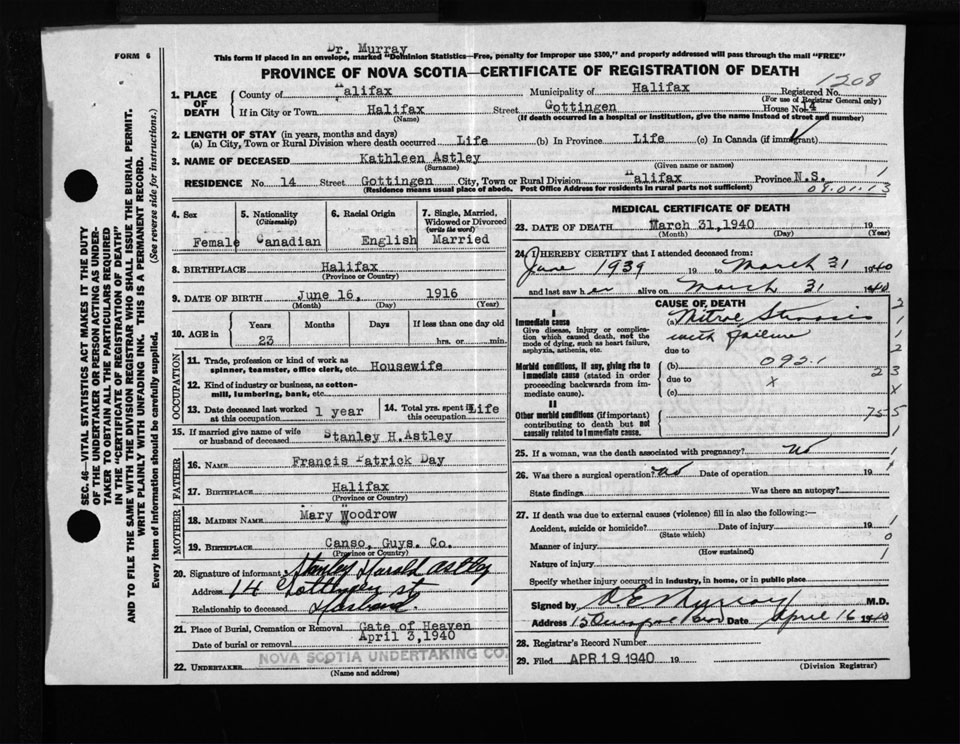 FORM 6
Dr. Murray
This form if placed in an envelope, marked "Dominion Statistics—Free, penalty for improper use $300," and properly addressed will pass through the mail "FREE"
PROVINCE OF NOVA SCOTIA—CERTIFICATE OF REGISTRATION OF DEATH
1208
1. PLACE OF DEATH
County of Halifax Municipality of Halifax Registered No.
(For use of Registrar General only)
If in City or Town Halifax Street Gottingen House No. 14
(Name) (If death occurred in a hospital or institution, give the name instead of street and number)
2. LENGTH OF STAY (in years, months and days)
(a) In City, Town or Rural Division where death occurred Life (b) In Province Life (c) In Canada (if immigrant)
3. NAME OF DECEASED Kathleen Astley
(Surname) (Given name or names)
1
RESIDENCE No. 14 Street Gottingen City, Town or Rural Division Halifax Province N.S.
(Residence means usual place of abode. Post Office Address for residents in rural parts not sufficient)
09.01.13
4. Sex
Female
5. Nationality
(Citizenship)
Canadian
6. Racial Origin
English
7. Single, Married, Widowed or Divorced
(write the word)
Married
8. BIRTHPLACE Halifax
(Province or Country)
9. DATE OF BIRTH June 16, 1916
(Month) (Day) (Year)
10. AGE in
Years Months Days If less than one day old
23 hrs. or min.
OCCUPATION
11. Trade, profession or kind of work as
spinner, teamster, office clerk, etc. Housewife
12. Kind of industry or business, as cotton-
mill, lumbering, bank, etc.
13. Date deceased last worked at this occupation 1 year
14. Total yrs. spent in this occupation Life
15. If married give name of wife or husband of deceased Stanley H. Astley
FATHER
16. NAME Francis Patrick Day
17. BIRTHPLACE Halifax
(Province or Country)
MOTHER
18. MAIDEN NAME Mary Woodrow
19. BIRTHPLACE Canso, Guys. Co.
(Province or Country)
20. Signature of informant Stanley Harold Astley
Address 14 Gottingen st
Relationship to deceased Husband.
21. Place of Burial, Cremation or Removal Gate of Heaven
Date of burial or removal April 3, 1940
22. UNDERTAKER NOVA SCOTIA UNDERTAKING CO.
(Name and address)
MEDICAL CERTIFICATE OF DEATH
23. DATE OF DEATH March 31, 1940 19
(Month) (Day) (Year)
24. I HEREBY CERTIFY that I attended deceased from:
June 1939 19 to March 31 1940
and last saw her alive on March 31 1940
CAUSE OF DEATH
I
Immediate cause
Give disease, injury or complication which caused death, not the mode of dying, such as heart failure, asphyxia, asthenia, etc.
(a) Mitral Stenosis
with failure
due to
Morbid conditions, if any, giving rise to immediate cause (stated in order proceeding backwards from immediate cause).
(b) 092.1
due to x
(c)
II
Other morbid conditions (if important) contributing to death but not causally related to immediate cause.
755
25. If a woman, was the death associated with pregnancy? No
26. Was there a surgical operation? No Date of operation 19
State findings Was there an autopsy?
27. If death was due to external causes (violence) fill in also the following:—
Accident, suicide or homicide? Date of injury 19
(State which)
Manner of injury
(How sustained)
Nature of injury
Specify whether injury occurred in industry, in home, or in public place
Signed by D E Murray M.D.
Address Date April 16 1940
28. Registrar's Record Number
29. Filed APR 19 1940 19
(Division Registrar)
SEC. 46—VITAL STATISTICS ACT MAKES IT THE DUTY
OF THE UNDERTAKER OR PERSON ACTING AS UNDER-
TAKER TO OBTAIN ALL THE PARTICULARS REQUIRED
IN THE "CERTIFICATE OF REGISTRATION OF DEATH"
AND TO FILE THE SAME WITH THE DIVISION REGISTRAR WHO SHALL ISSUE THE BURIAL PERMIT.
WRITE PLAINLY WITH UNFADING INK. THIS IS A PERMANENT RECORD.
Every item of Information should be carefully supplied. (See reverse side for instructions.)